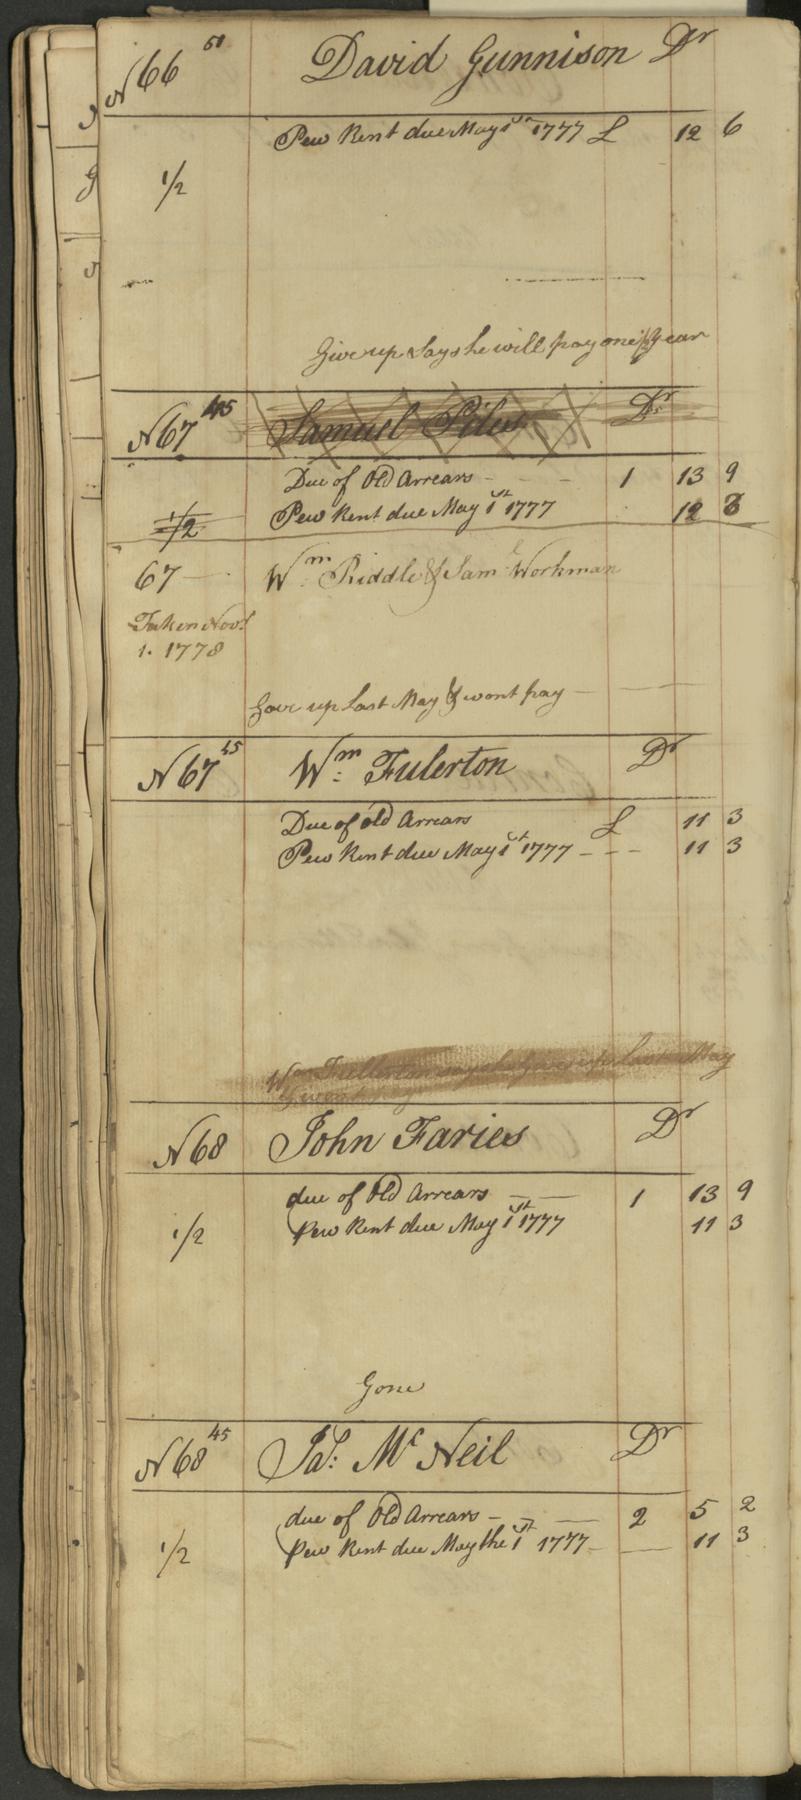 N 66 50 David Gunnison Dr
Pew Rent due May 1st 1777 £ 12 6
1/2
Give up Says he will pay one 1/2 year
N 67 45 Samuel Piles Dr
Due of Old Arrears - - - 1 13 9
1/2 Pew Rent due May 1st 1777 12 6
67 Wm: Riddle & Saml Workman
Taken Novr
1. 1778
Gave up Last May & wont pay
N 67 45 Wm: Fulerton Dr
Due of old Arrears £ 11 3
Pew Rent due May 1st 1777 - - - 11 3
Wm Fullerton says he Gave up Last May
N 68 John Faries Dr
due of Old Arrears 1 13 9
1/2 Pew Rent due May 1st 1777 11 3
Gone
N 68 45 Jas: Mc Neil Dr
due of Old Arrears - 2 5 2
1/2 Pew Rent due May the 1st 1777 11 3